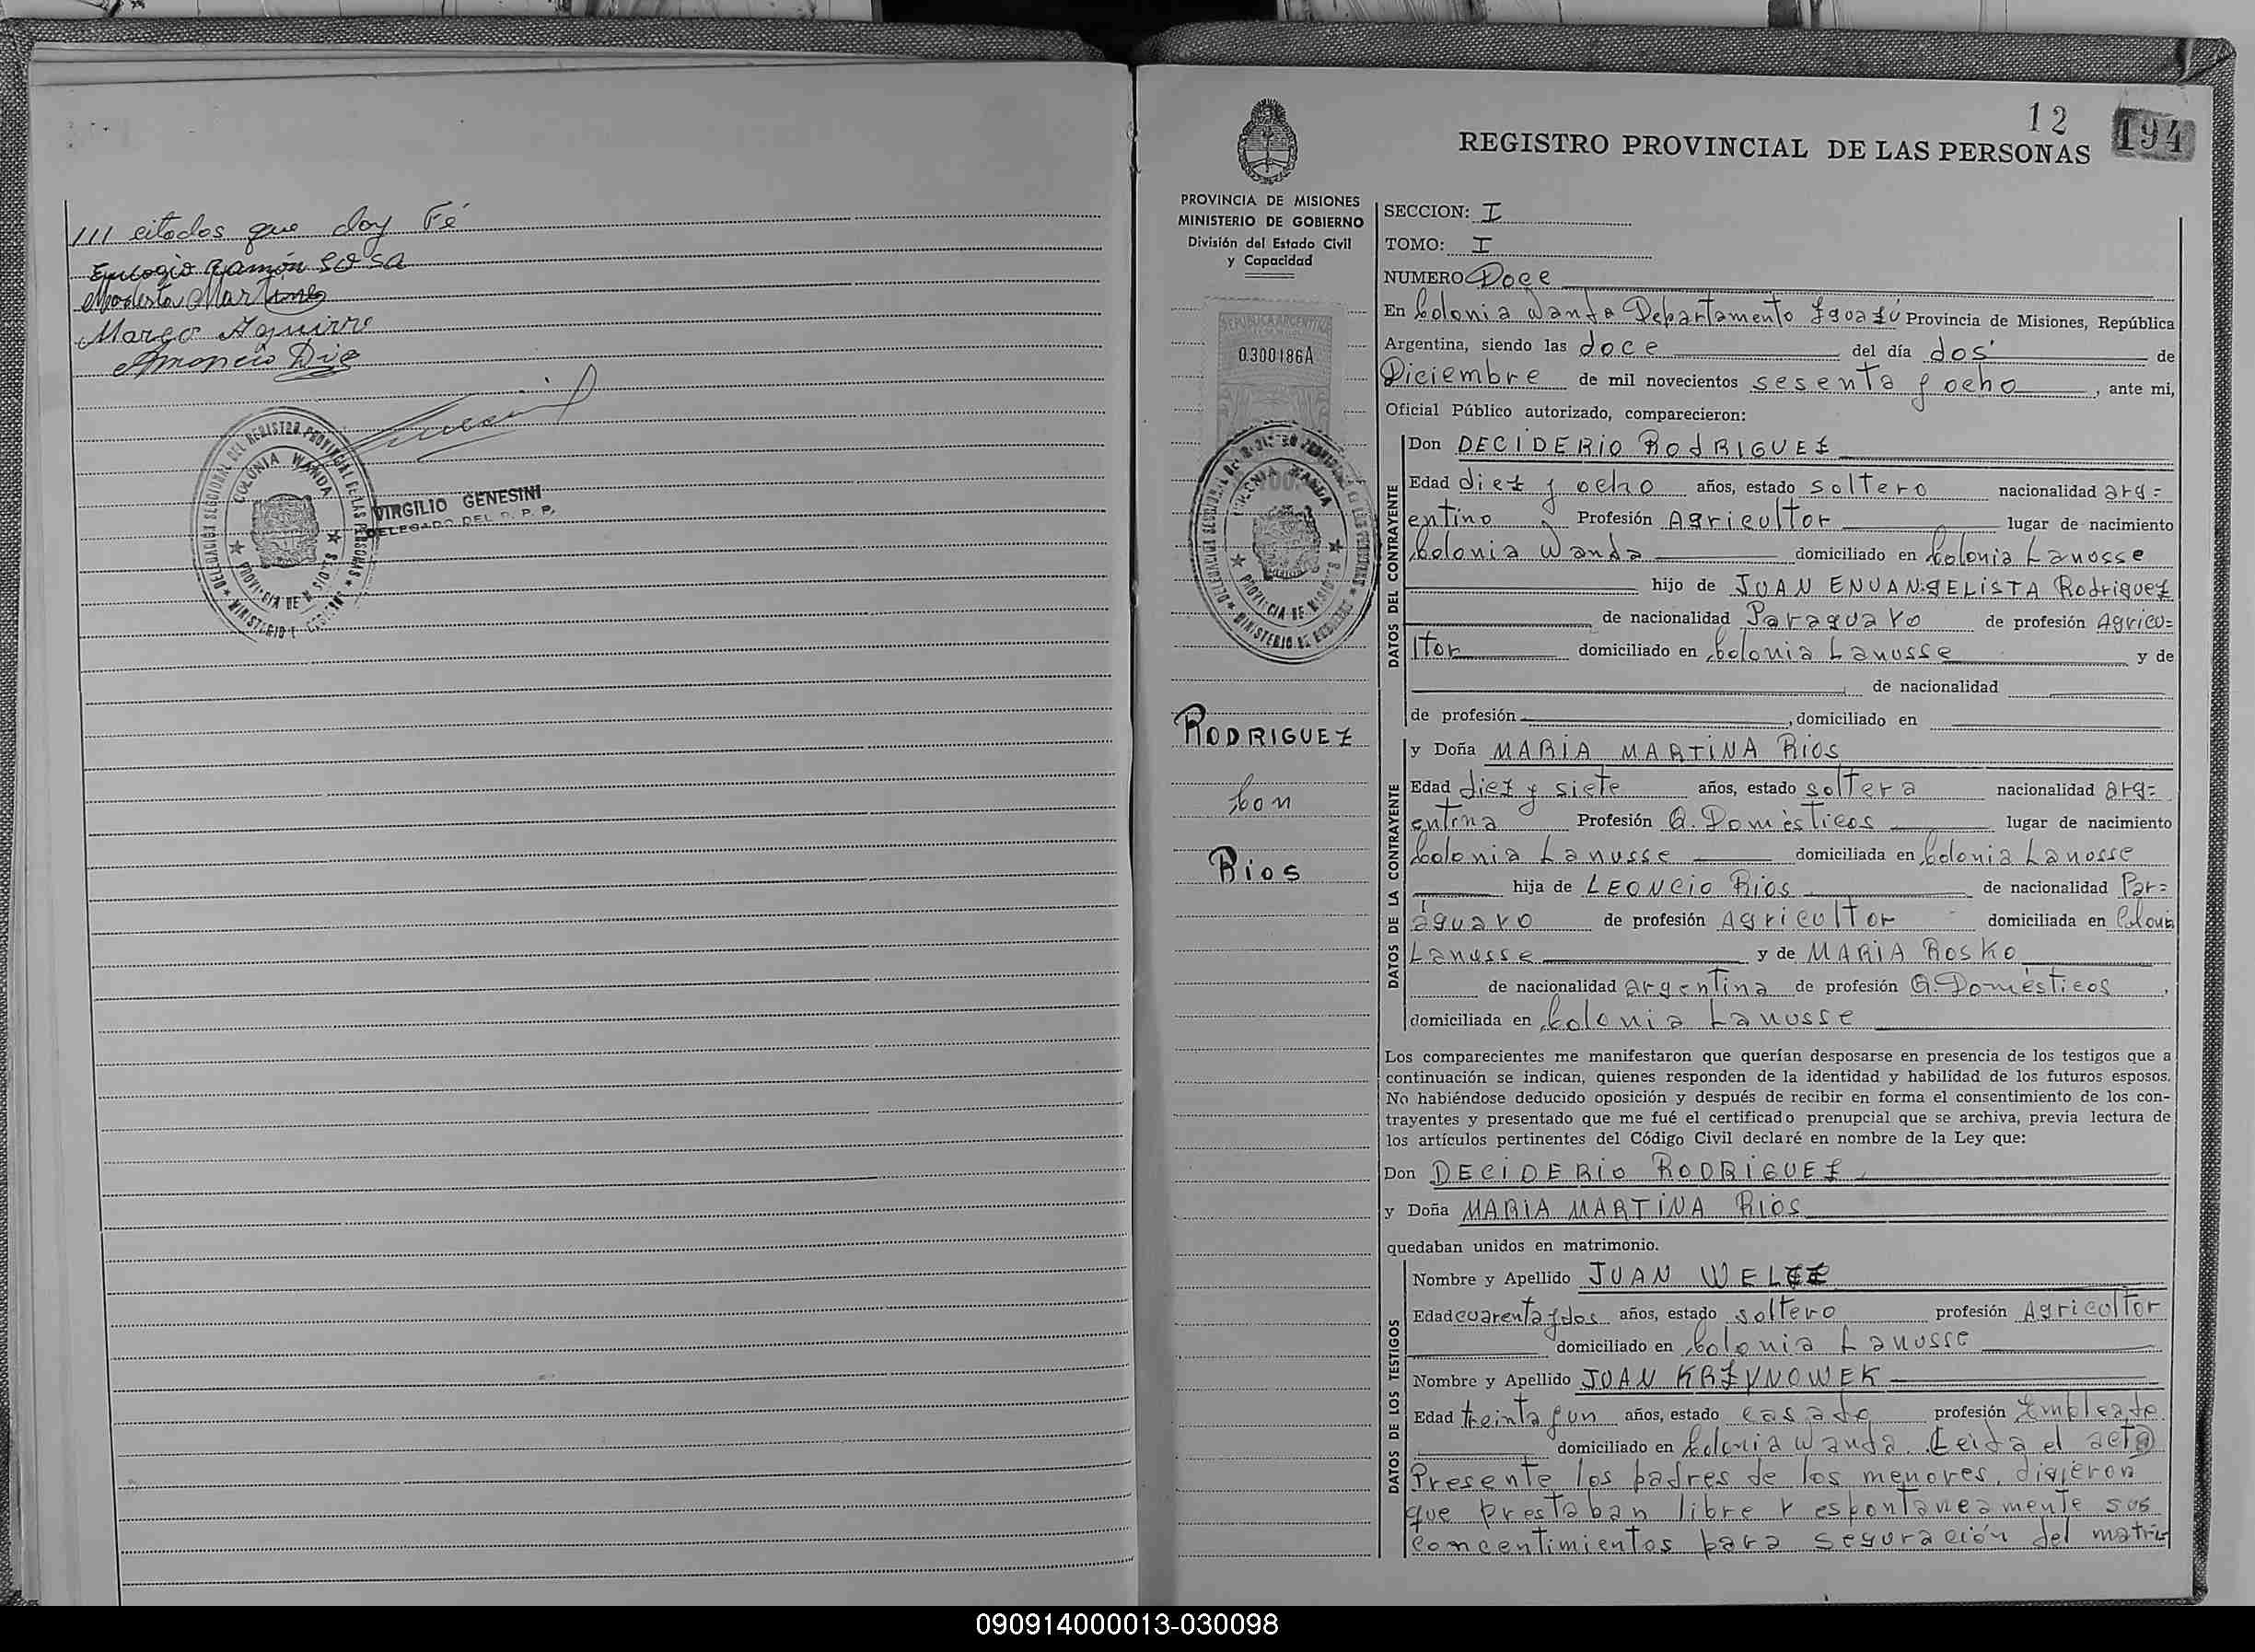 /// citados que doy Fé
Eulogio Ramón Sosa
Modesta Martinez
Marco Aguirre
VIRGILIO GENESINI
DELEGADO DEL R. P. P.
DELEGACIÓN SECCIONAL DEL REGISTRO PROVINCIAL DE LAS PERSONAS
COLONIA WANDA
PROVINCIA DE MISIONES
12
194
REGISTRO PROVINCIAL DE LAS PERSONAS
PROVINCIA DE MISIONES
MINISTERIO DE GOBIERNO
División del Estado Civil
y Capacidad
REPUBLICA ARGENTINA
0.300186A
RODRIGUEZ
Con
Rios
SECCION: I
TOMO: I
NUMERO Doce
En Colonia Wanda Departamento Iguazú Provincia de Misiones, República
Argentina, siendo las doce del día dos de
Diciembre de mil novecientos sesenta y ocho, ante mi,
Oficial Público autorizado, comparecieron:
DATOS DEL CONTRAYENTE
Don DECIDERIO RODRIGUEZ
Edad diez y ocho años, estado soltero nacionalidad arg=
entino Profesión Agricultor lugar de nacimiento
Colonia Wanda domiciliado en Colonia Lanusse
hijo de JUAN ENUANGELISTA Rodriguez
de nacionalidad Paraguayo de profesión Agricu=
ltor domiciliado en Colonia Lanusse y de
de nacionalidad
de profesión , domiciliado en
DATOS DE LA CONTRAYENTE
y Doña MARIA MARTINA RIOS
Edad diez y siete años, estado soltera nacionalidad arg=
entina Profesión Q. Domésticos lugar de nacimiento
Colonia Lanusse domiciliada en Colonia Lanusse
hija de LEONCIO Rios de nacionalidad Par=
aguayo de profesión Agricultor domiciliada en Colonia
Lanusse y de MARIA ROSKO
de nacionalidad argentina de profesión Q. Domésticos,
domiciliada en Colonia Lanusse
Los comparecientes me manifestaron que querían desposarse en presencia de los testigos que a
continuación se indican, quienes responden de la identidad y habilidad de los futuros esposos.
No habiéndose deducido oposición y después de recibir en forma el consentimiento de los con-
trayentes y presentado que me fué el certificado prenupcial que se archiva, previa lectura de
los artículos pertinentes del Código Civil declaré en nombre de la Ley que:
Don DECIDERIO RODRIGUEZ
y Doña MARIA MARTINA RIOS
quedaban unidos en matrimonio.
DATOS DE LOS TESTIGOS
Nombre y Apellido JUAN WELZ
Edad cuarenta y dos años, estado soltero profesión Agricultor
domiciliado en Colonia Lanusse
Nombre y Apellido JUAN KRZYNOWEK
Edad treinta y un años, estado casado profesión Empleado
domiciliado en Colonia Wanda. Leida el acta
Presente los padres de los menores, digeron
que prestaban libre y espontaneamente sus
concentimientos para seguración del matri=
090914000013-030098